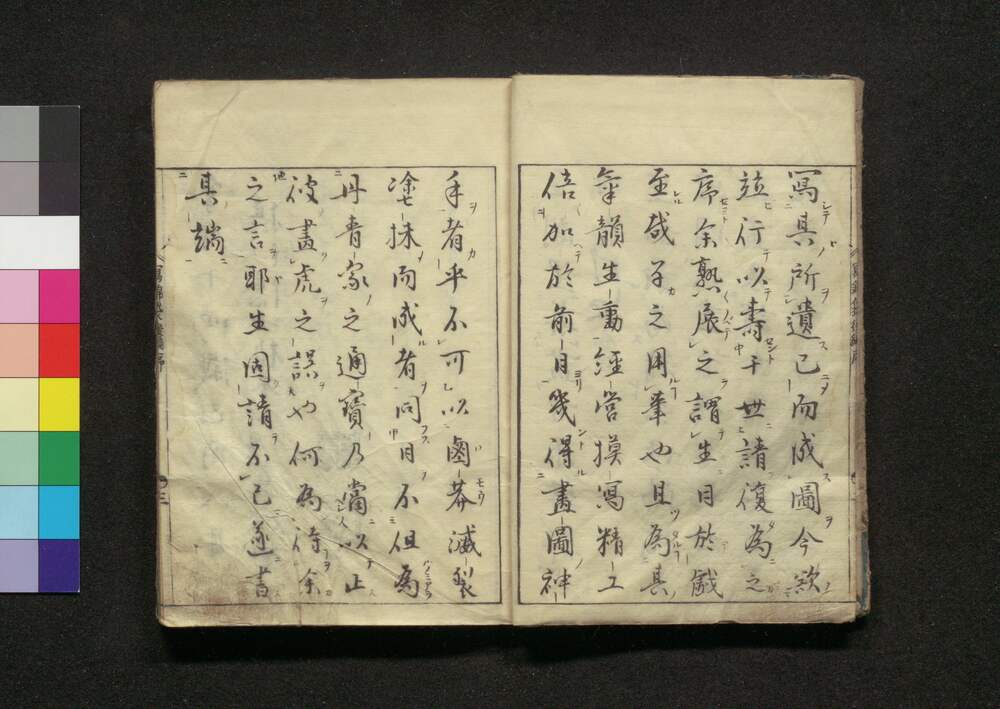 寫其所遺已而成圖今欲
竝行以壽于世請復為之
序余熟展之謂生曰於戲
至哉子之用筆也且為其
氣韻生動經營摸寫精工
倍加於前日幾得畫圖神
手者乎不可以鹵莽滅裂
塗抹而成者同日不但為
丹青家之通寶乃當以止
彼畫虎之誤也何為待余
之言耶生固請不已遂書
其端